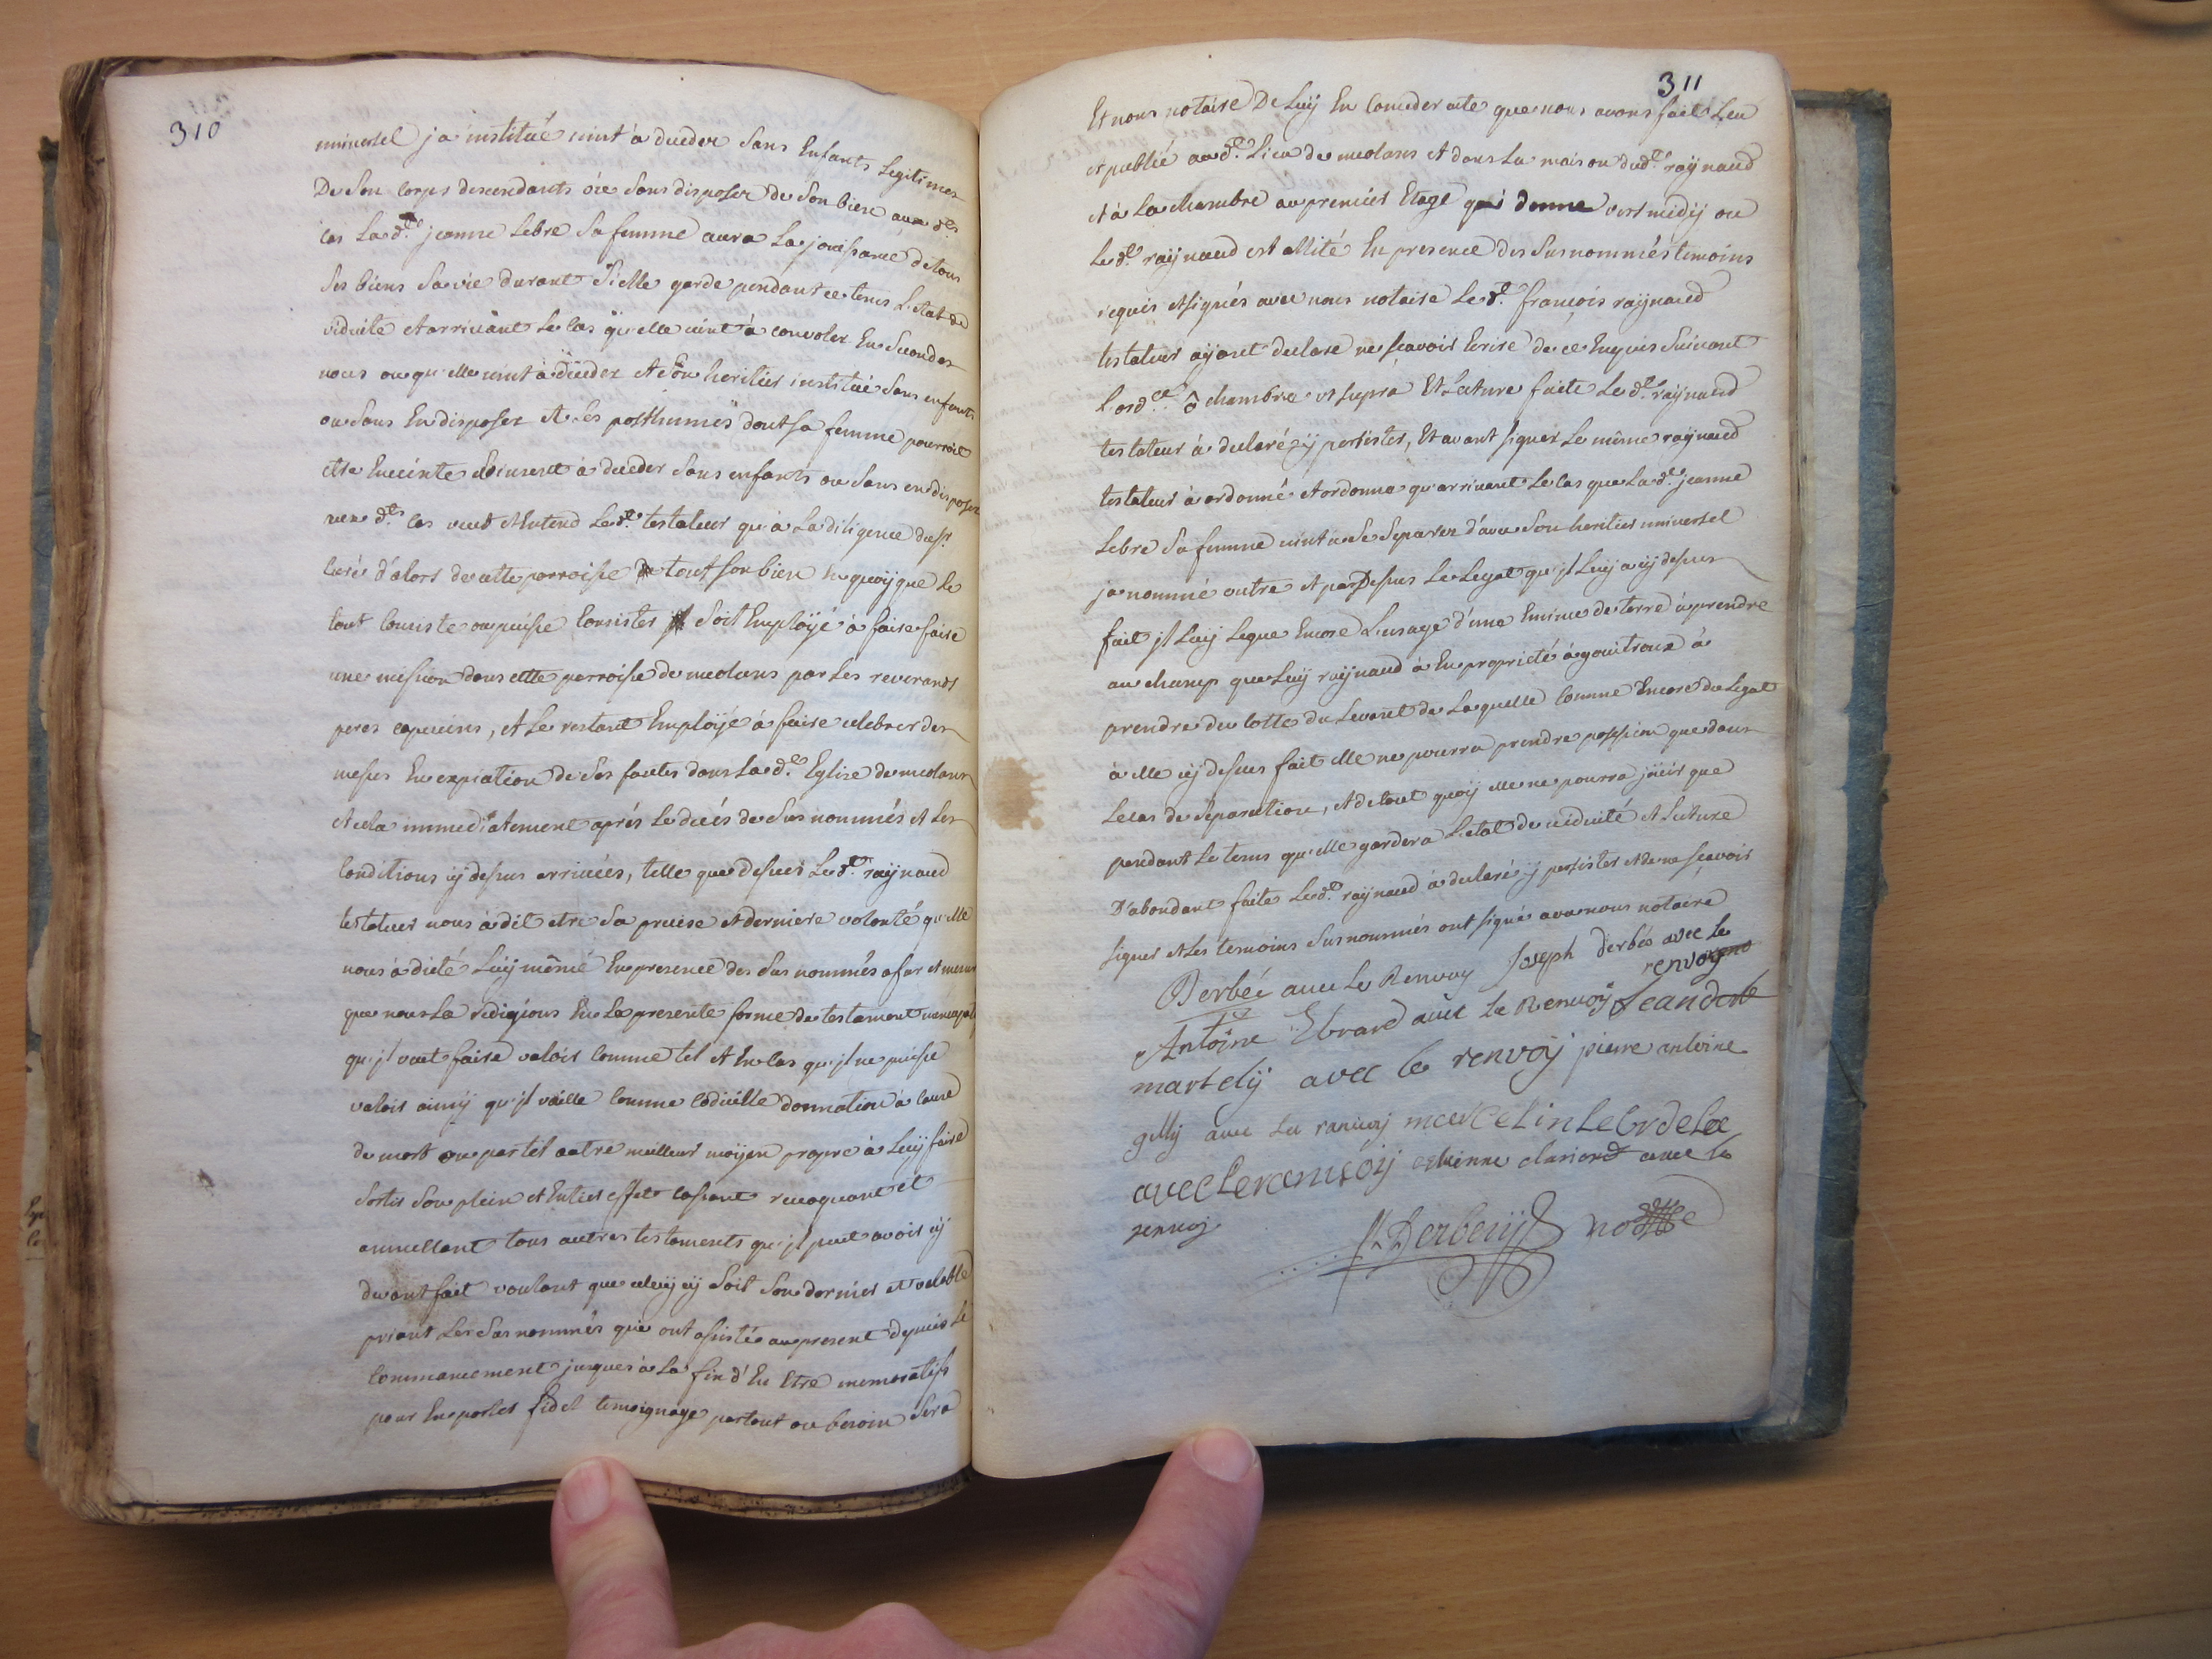 310
universel ja institué vint à deceder Sans Enfants Legitimes
De Son Corps descendants ou Sans disposer de Son bien aux dts
cas La dte jeanne Lebre Sa femme aura La jouissance de tous
Ses biens Sa vie durant Si elle garde pendant ce tems L'Etat de
viduité Et arrivant Le Cas qu'elle vint à convoler En Secondes
noces ou qu'elle vint à deceder Et Son heritier institué Sans enfants
ou Sans En disposer Et Les posthumes dont Sa femme pourroit
etre Enceinte vinsent à deceder Sans enfants ou Sans en disposer
aux dts cas veut Et Entend Le dt testateur qu'à La diligence du Sr
Curé d'alors de cette parroisse tout son bien En quoy que Le
tout Consiste ou puisse Consister Soit Employé à faire faire
une mission dans cette parroisse de meolans par Les reverands
peres capucins, Et Le restant Employé à faire celebrer des
messes En expiation de Ses fautes dans La dte Eglise de meolans
Et cela immediatement aprés Le decés de Sus nommés Et Les
Conditions cy dessus arrivées, telle que dessus Le dt raynaud
testateur nous à dit etre Sa precise Et derniere volonté qu'elle
nous à dicté Luy même En presence des Sus nommés a fur et mesure
que nous La redigions En Le presente forme de testament nuncupatif
qu'jl veut faire valoir Comme tel Et En Cas qu'jl ne puisse
valoir ainsy qu'jl vaille Comme Codicille donnation à Cause
de mort ou par tel autre meilleur moyen propre à Luy faire
Sortir Son plein et Entier effet Cassant revoquant et
annullant tous autres testaments qu'jl peut avoir cy
devant fait voulant que celuy cy Soit Son dernier et valable
priant Les Sus nommés qui ont assisté au present depuis Le
Commancement jusques à La fin d'En Etre memoratifs
pour En porter fidel temoignage partout ou besoin Sera
311
Et nous notaire De Luy En Conceder acte que nous avons fait Leu
et publié au dt Lieu de meolans Et dans La maison dudt raynaud
et à La chambre au premier Etage qui donne vers midy ou
Le dt raynaud est allité En presence des Susnommés temoins
requis Et signés avec nous notaire Le dt françois raynaud
testateur ayant declaré ne sçavoir Ecrire de ce Enquis Suivant
L'ordce ô chambre ut supra Et Lecture faite Le dt raynaud
testateur à declaré y persister, Et avant signer Le même raynaud
testateur à ordonné Et ordonne qu'arrivant Le Cas que La dte jeanne
Lebre Sa femme vint a Se Separer d'avec Son heritier universel
ja nommé outre et par Dessus Le Legat qu'jl Luy a cy dessus
fait jl Luy Legue Encore L'usage d'une Emine de terre à prendre
au champ que Luy raynaud à En proprieté à gouitroux à
prendre du Cotte du Levant de Laquelle Comme Encore du Legat
à elle cy dessus fait elle ne pourra prendre possion que dans
Le cas de Separation, Et de tout quoy elle ne pourra jüir que
pendant Le tems qu'elle gardera L'etat de viduité Et Lecture
D'abondant faite Le dt raynaud à declaré y persister et de ne sçavoir
signer Et Les temoins Susnommés ont signé avec nous notaire
Derbéz avec Le Renvoy Joseph derbés avec Le
renvoy
Antoine Ebrard avec Le Renvoy Jean
martely avec le renvoy pierre antoine
gilly avec Lu ranvoy marcelin Lebre de La
avec Le ranvoy etienne clariond avec Le
renvoy
Derbezy nore